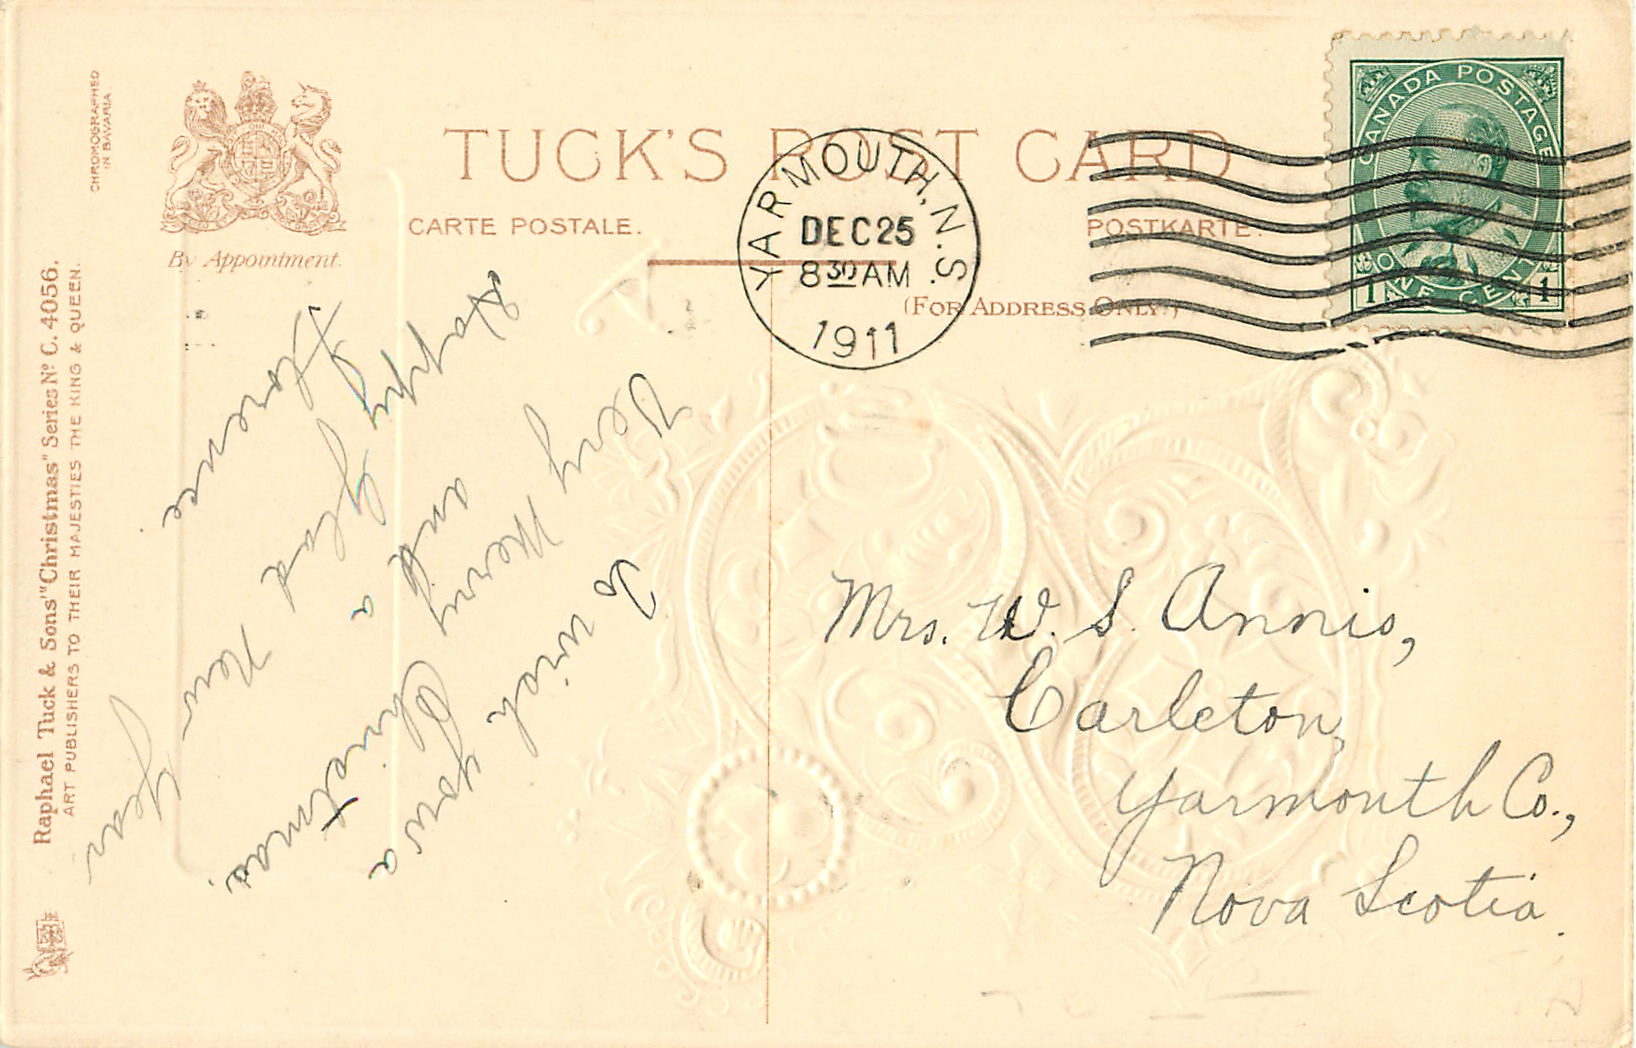 TUCK'S POST CARD
CARTE POSTALE.
POSTKARTE.
(FOR ADDRESS ONLY.)
By Appointment.
CHROMOGRAPHED
IN BAVARIA
Raphael Tuck & Sons' "Christmas" Series Nº C. 4056.
ART PUBLISHERS TO THEIR MAJESTIES THE KING & QUEEN.
YARMOUTH, N.S.
DEC 25
8 30 AM
1911
CANADA POSTAGE
1 ONE CENT 1
To wish you a
Very Merry Christmas.
and a
Happy Glad New Year
Florence.
Mrs. W. S. Annis,
Carleton,
Yarmouth Co.,
Nova Scotia.